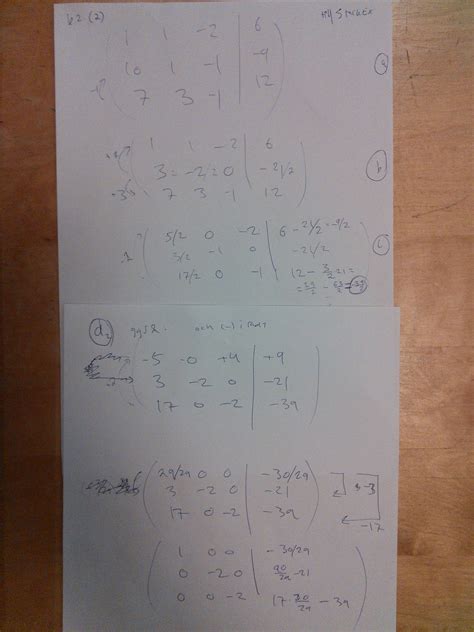 b2 (2)
1 1 -2 | 6
10 1 -1 | -9
7 3 -1 | 12
a
1 1 -2 | 6
3 -2 0 | -21/2
7 3 -1 | 12
b
5/2 0 -2 | 6 - 21/2 = -9/2
3/2 -1 0 | -21/2
17/2 0 -1 | 12 -
c
d2
-5 -0 +4 | +9
3 -2 0 | -21
17 0 -2 | -39
29/29 0 0 | -30/29
3 -2 0 | -21
17 0 -2 | -39
-3
-17
1 0 0 | -30/29
0 -2 0 | 90/29 -21
0 0 -2 | 17· 30/29 - 39